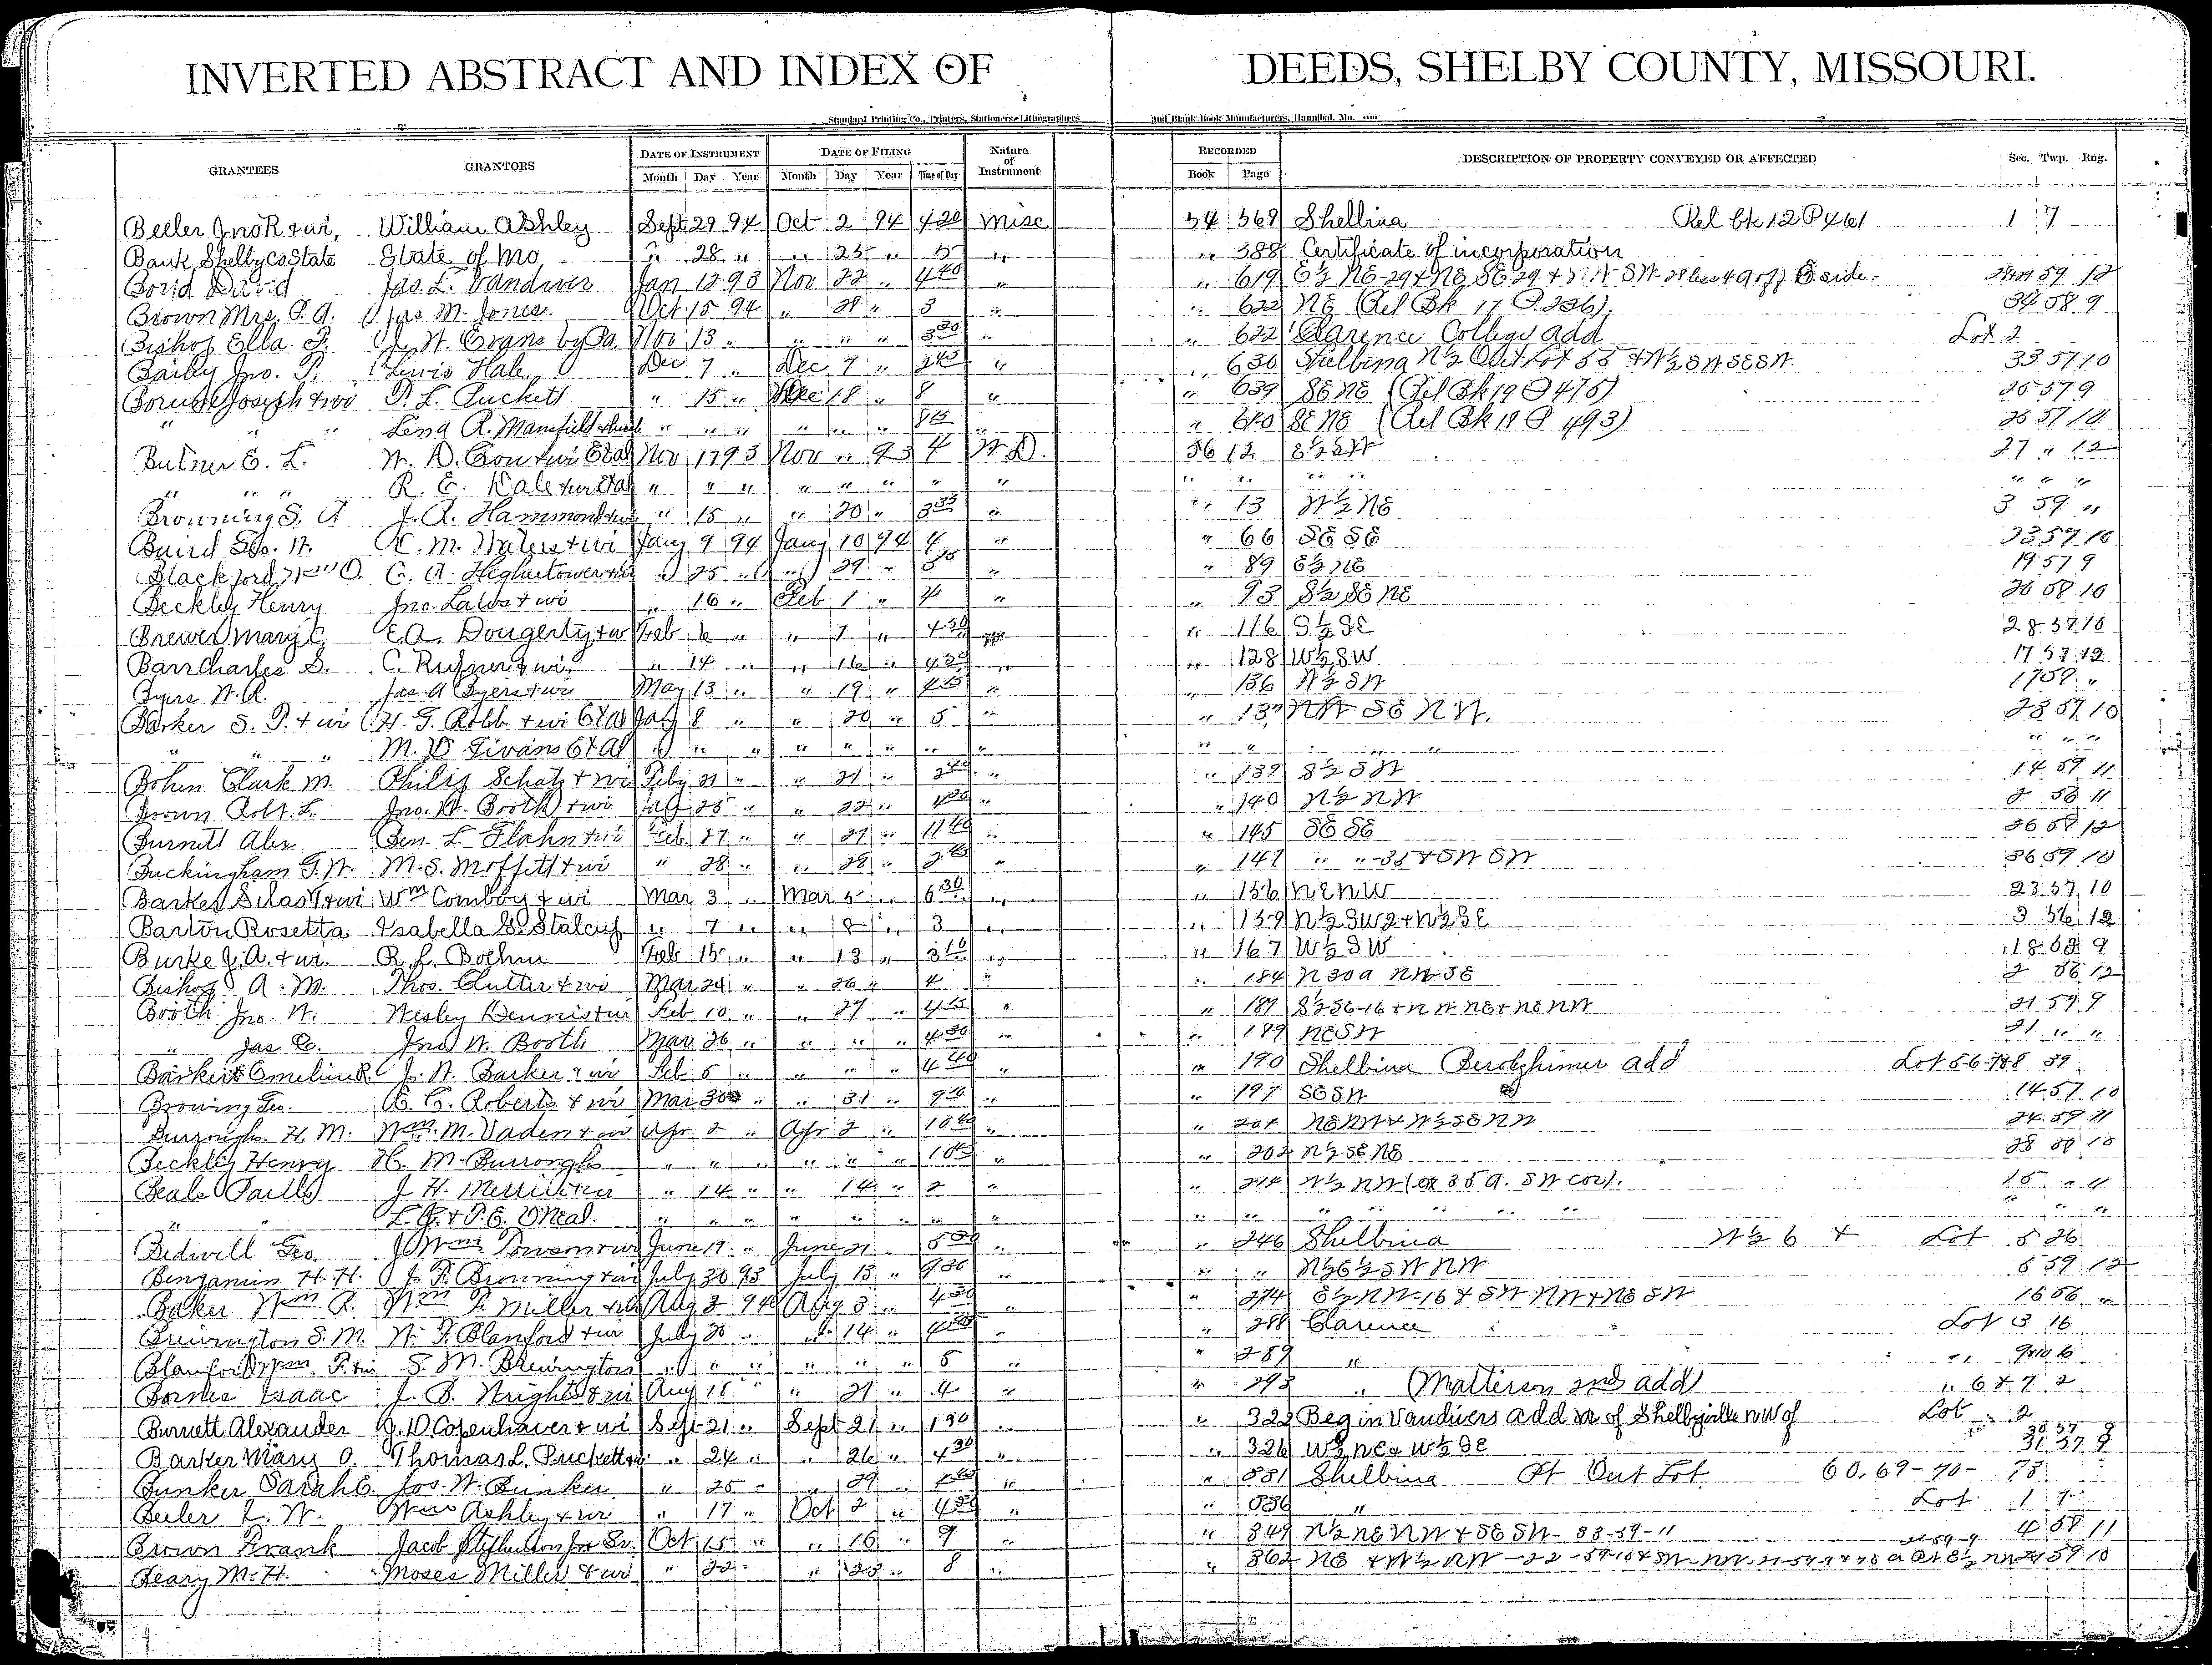 INVERTED ABSTRACT AND INDEX OF DEEDS, SHELBY COUNTY, MISSOURI.
Standard Printing Co., Printers, Stationers & Lithographers and Blank Book Manufacturers, Hannibal, Mo.
GRANTEES GRANTORS DATE OF INSTRUMENT DATE OF FILING Nature of Instrument RECORDED DESCRIPTION OF PROPERTY CONVEYED OR AFFECTED Sec. Twp. Rng.
Month Day Year Month Day Year Time of Day Book Page
Beeler Jno R & wi, William Ashley Sept 29 94 Oct 2 94 4 20 Misc 54 569 Shelbina Rel bk 12 P 461 1 7
Bank Shelby Co State State of Mo " 28 " " 25 " 5 " " 588 Certificate of incorporation
David Jas. L. Vandiver Jan 12 93 Nov 22 " 4 40 " " 619 E½ NE-29 & NE SE 29 & off E side 59 12
Brown Mrs. P. A. Jas M. Jones Oct 15 94 " 28 " 3 " " 622 NE (Rel Bk 17 P. 236) 34 58 9
Bishop Ella F. J. W. Evans by Nov 13 " " " " 3 30 " " 622 Clarence College add Lot 2
Jno. P. Lewis Hale Dec 7 " Dec 7 " 2 45 " " 630 Shelbina N½ Out Lot 55 & N½ SW SE SW 33 57 10
Joseph & wi P. L. Puckett " 15 " Dec 18 " 8 " " 639 SE NE (Rel Bk 19 P 475) 25 57 9
" " " Lena R. Mansfield & husb " " " " " " 8 15 " " 640 SE NE (Rel Bk 18 P 493) 25 57 10
Butner E. L. W. D. & wi Etal Nov 17 93 Nov " 93 4 W.D. 56 12 E½ SW 27 " 12
" " " R. E. Hale & wi Etal " " " " " " " " " " " " " " "
Browning S. A J. A. Hammond & wi " 15 " " 20 " 3 35 " " 13 W½ NE 3 59 "
Baird Geo. W. C. M. Waters & wi Jany 9 94 Jany 10 94 4 " " 66 SE SE 23 57 10
Blackford Wm O. C. A. Hightower & wi " 25 " " 29 " " " 89 E½ NE 19 57 9
Beckley Henry Jno. Laws & wi " 16 " Feb 1 " 4 " " 93 S½ SE NE 26 58 10
Brewer Mary C. E. A. Dougerty & w Feb 6 " " 7 " 4 30 " " 116 S½ SE 28 57 10
Barr Charles S. C. Rufner & wi, " 14 " " 16 " 4 20 " " 128 W½ SW 17 57 12
Byers W. R. Jas. A Byers & wi May 13 " " 19 " 4 15 " " 136 W½ SW 17 58 "
Barker S. P. & wi H. T. Robb & wi Etal Jan 8 " " 20 " 5 " " 137 NW SE NW. 23 57 10
" " " M. D. Givans Etal " " " " " " " " " " " " " " "
Bohm Clark M. Philip Schatz & wi Feby 21 " " 21 " 2 40 " " 139 S½ SW 14 59 11
Brown Robt. L. Jno. W. Booth & wi Jan 25 " " 22 " 4 20 " " 140 N½ NW 2 58 11
Burnett Alex Ben. L. Flahn & wi Feb 27 " " 27 " 11 40 " " 145 SE SE 26 59 12
Buckingham G. W. M. S. Moffett & wi " 28 " " 28 " 2 45 " " 147 " " -35 & SW SW 36 59 10
Barker Silas T & wi Wm Comboy & wi Mar 3 " Mar 5 " 6 30 " " 156 NE NW 23 57 10
Barton Rosetta Isabella G. Stalcup " 7 " " 8 " 3 " " 159 N½ SW 2 & N½ SE 3 56 12
Burke J. A. & wi. R. L. Boehm Feb 15 " " 13 " 3 10 " " 167 W½ SW 18 58 9
Bishop A. M. Thos. Clutter & wi Mar 24 " " 26 " 4 " " 184 N 30 a NW SE 2 56 12
Booth Jno. W. Wesley Dennis & wi Feb 10 " " 27 " 4 15 " " 187 S½ SE-16 & NW NE & NE NW 21 59 9
" Jas C. Jno W. Booth Mar 26 " " " " 4 30 " " 189 NE SW 21 " "
Barker Emeline R J. W. Barker & wi Feb 5 " " " " 4 40 " " 190 Shelbina Berolzhimer add Lot 5-6-7&8 39
Browing Geo. C. C. Roberts & wi Mar 30 " " 31 " 9 20 " " 197 SE SW 14 57 10
Burroughs H. M. Wm. M. Vaden & wi Apr 2 " Apr 2 " 10 40 " " 201 NE NW & W½ SE NW 24 59 11
Beckley Henry H. M. Burroughs " " " " " " 10 45 " " 202 N½ SE NE 28 58 10
Beals J. H. & wi " 14 " " 14 " 2 " " 214 W½ NW (ex 35 a. SW cor). 15 " 11
" " L. G. & P. E. O'Neal. " " " " " " " " " " " " " " " " "
Bidwell Geo. Wm. Towson & wi June 19 " June 21 " 5 30 " " 246 Shelbina W½ 6 & Lot 5 26
Benjamin H. H. J. F. Browning & wi July 30 93 July 13 " 9 30 " " " N½ E½ SW NW 5 59 12
Baker Wm R. Wm F. Miller & wi Aug 3 94 Aug 3 " 4 30 " " 274 E½ NW-16 & SW NW & NE SW 16 56 "
Brewington S. M. W. F. Blanford & wi July 20 " " 14 " " " 288 Clarence Lot 3 16
Blanford Wm. F. & wi S. M. Brewington " " " " " " 5 " " 289 " "
Barnes Isaac J. B. Wright & wi Aug 18 " " 21 " 4 " " 293 " (Matterson 2nd add) " 6 & 7 2
Burnett Alexander J. D. Copenhaver & wi Sept 21 " Sept 21 " 1 30 " " 322 Beg in Vandivers add of Shelbyville NW of Lot 2
Barker Mary O. Thomas L. Puckett & wi " 24 " " 26 " 4 30 " " 326 W½ NE & W½ SE 31 57 9
Bunker Sarah E. Jos. W. Bunker " 25 " " 29 " " " 331 Shelbina Pt Out Lot 60, 69-70- 73
Beeler L. W. Wm Ashley & wi " 17 " Oct 2 " 4 20 " " 336 " Lot 1 7
Brown Frank Jacob Oct 15 " " 16 " 9 " " 349 N½ NE NW & SE SW- 33-59-11 4 58 11
Beary M. H. Moses Miller & wi " 22 " " 23 " 8 " " 362 NE & W½ NW -22-59-10 & 59 10